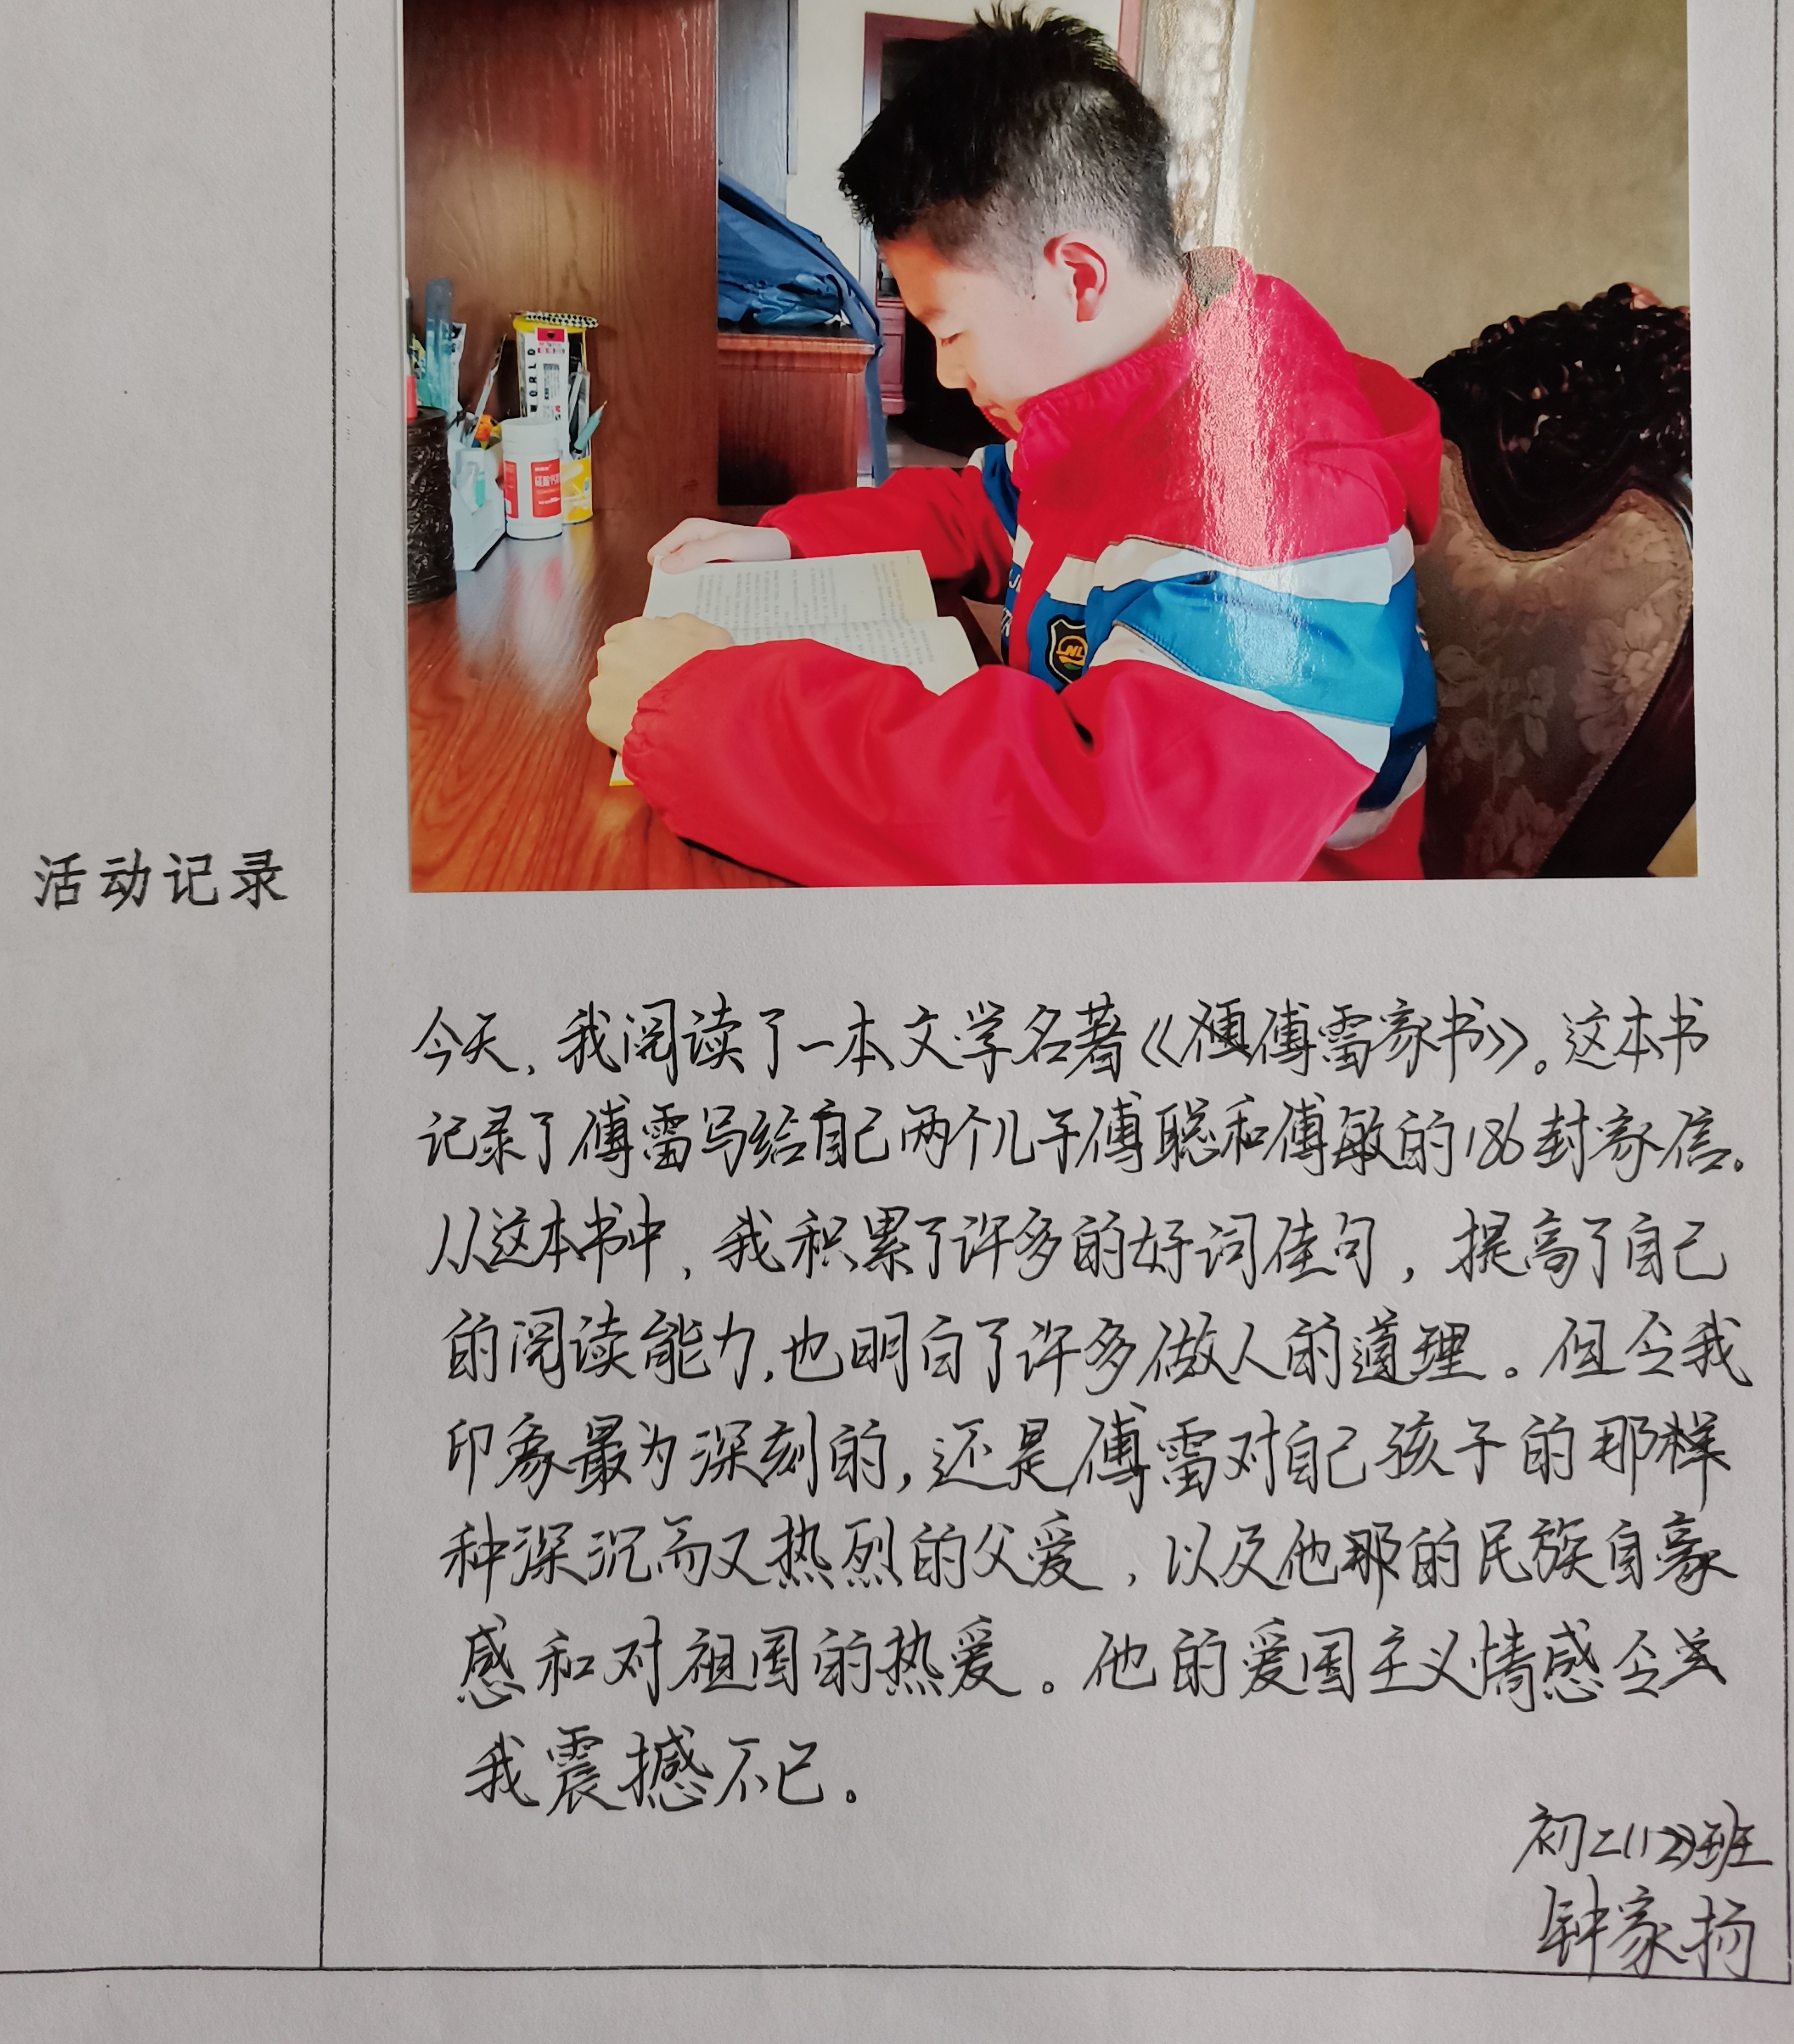 WORLD
NL
活动记录
今天，我阅读了一本文学名著《傅雷家书》。这本书
记录了傅雷写给自己两个儿子傅聪和傅敏的186封家信。
从这本书中，我积累了许多的好词佳句，提高了自己
的阅读能力，也明白了许多做人的道理。但令我
印象最为深刻的，还是傅雷对自己孩子的那样
种深沉而又热烈的父爱，以及他那的民族自豪
感和对祖国的热爱。他的爱国主义情感令
我震撼不已。
初二(12)班
钟家扬